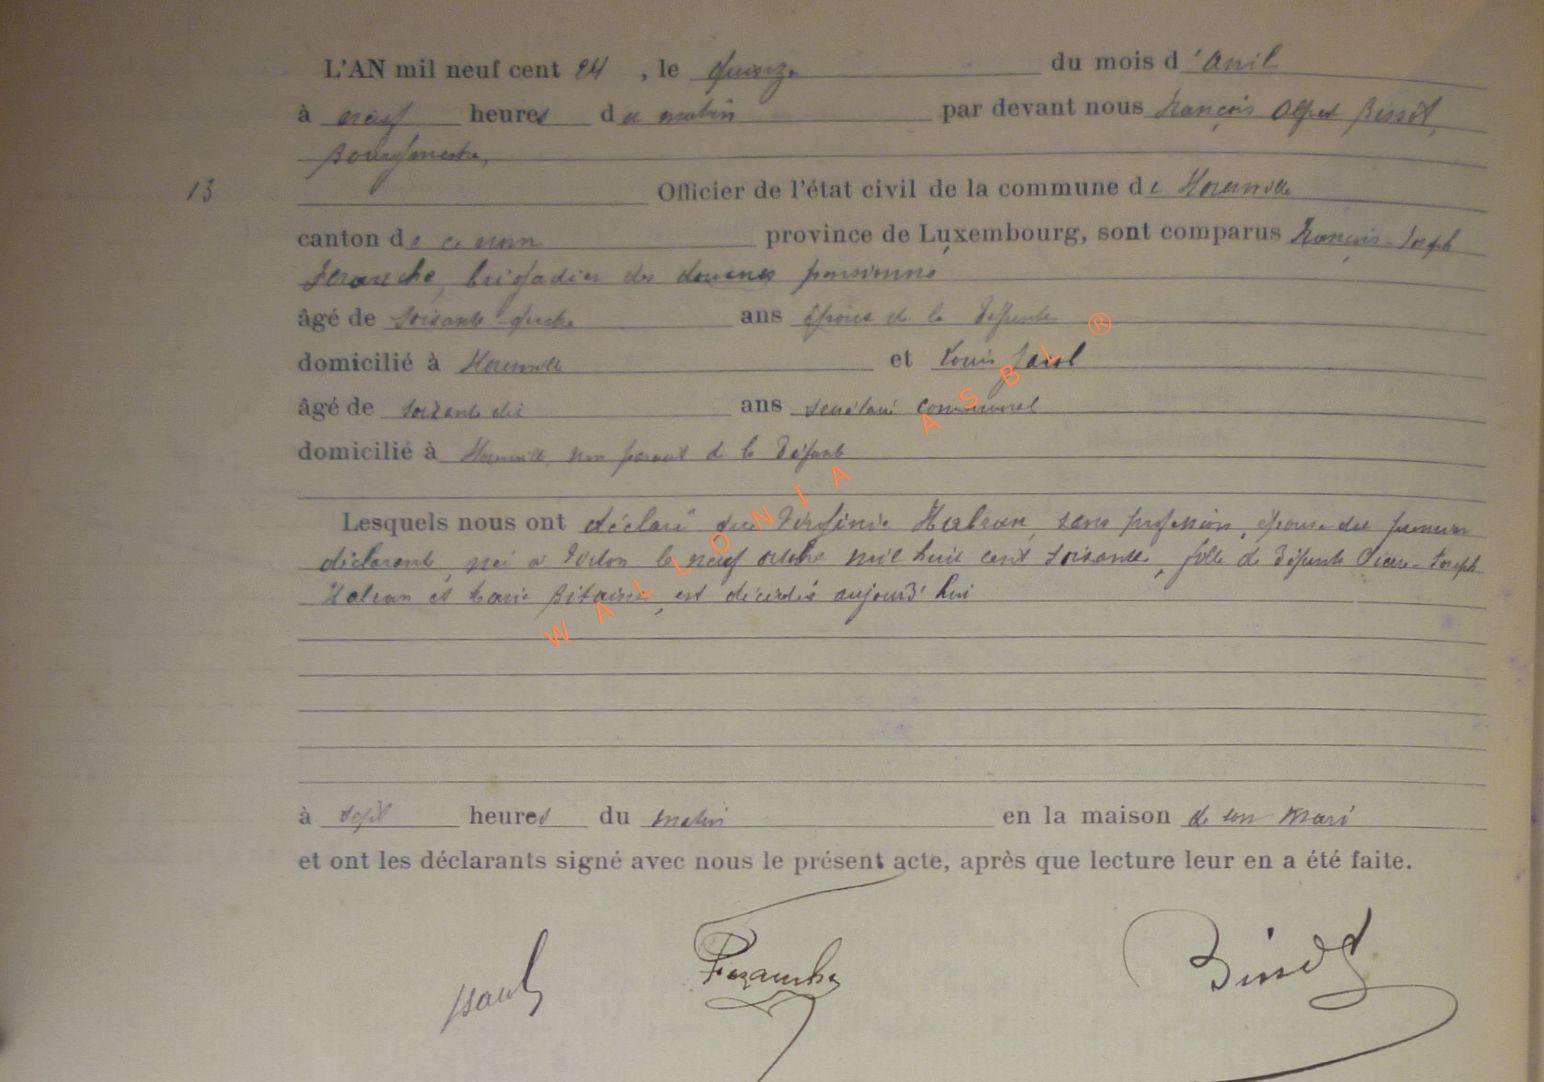 L'AN mil neuf cent 24, le quinze du mois d'avril
à neuf heures du matin par devant nous François Alfred Bissot,
Bourgmestre,
13 Officier de l'état civil de la commune de
canton de ce nom province de Luxembourg, sont comparus François-Joseph
brigadier des douanes pensionné
âgé de soixante ans époux de la défunte
domicilié à et Louis
âgé de soixante dix ans secrétaire communal
domicilié à non parent de la défunte
Lesquels nous ont déclaré que Virginie Habran, sans profession, épouse du premier
déclarant, née à le neuf octobre mil huit cent soixante, fille de défunts Pierre-Joseph
Habran et Marie est décédée aujourd'hui
à sept heures du matin en la maison de son mari
et ont les déclarants signé avec nous le présent acte, après que lecture leur en a été faite.
Bissot
WALLONIA ASBL ®